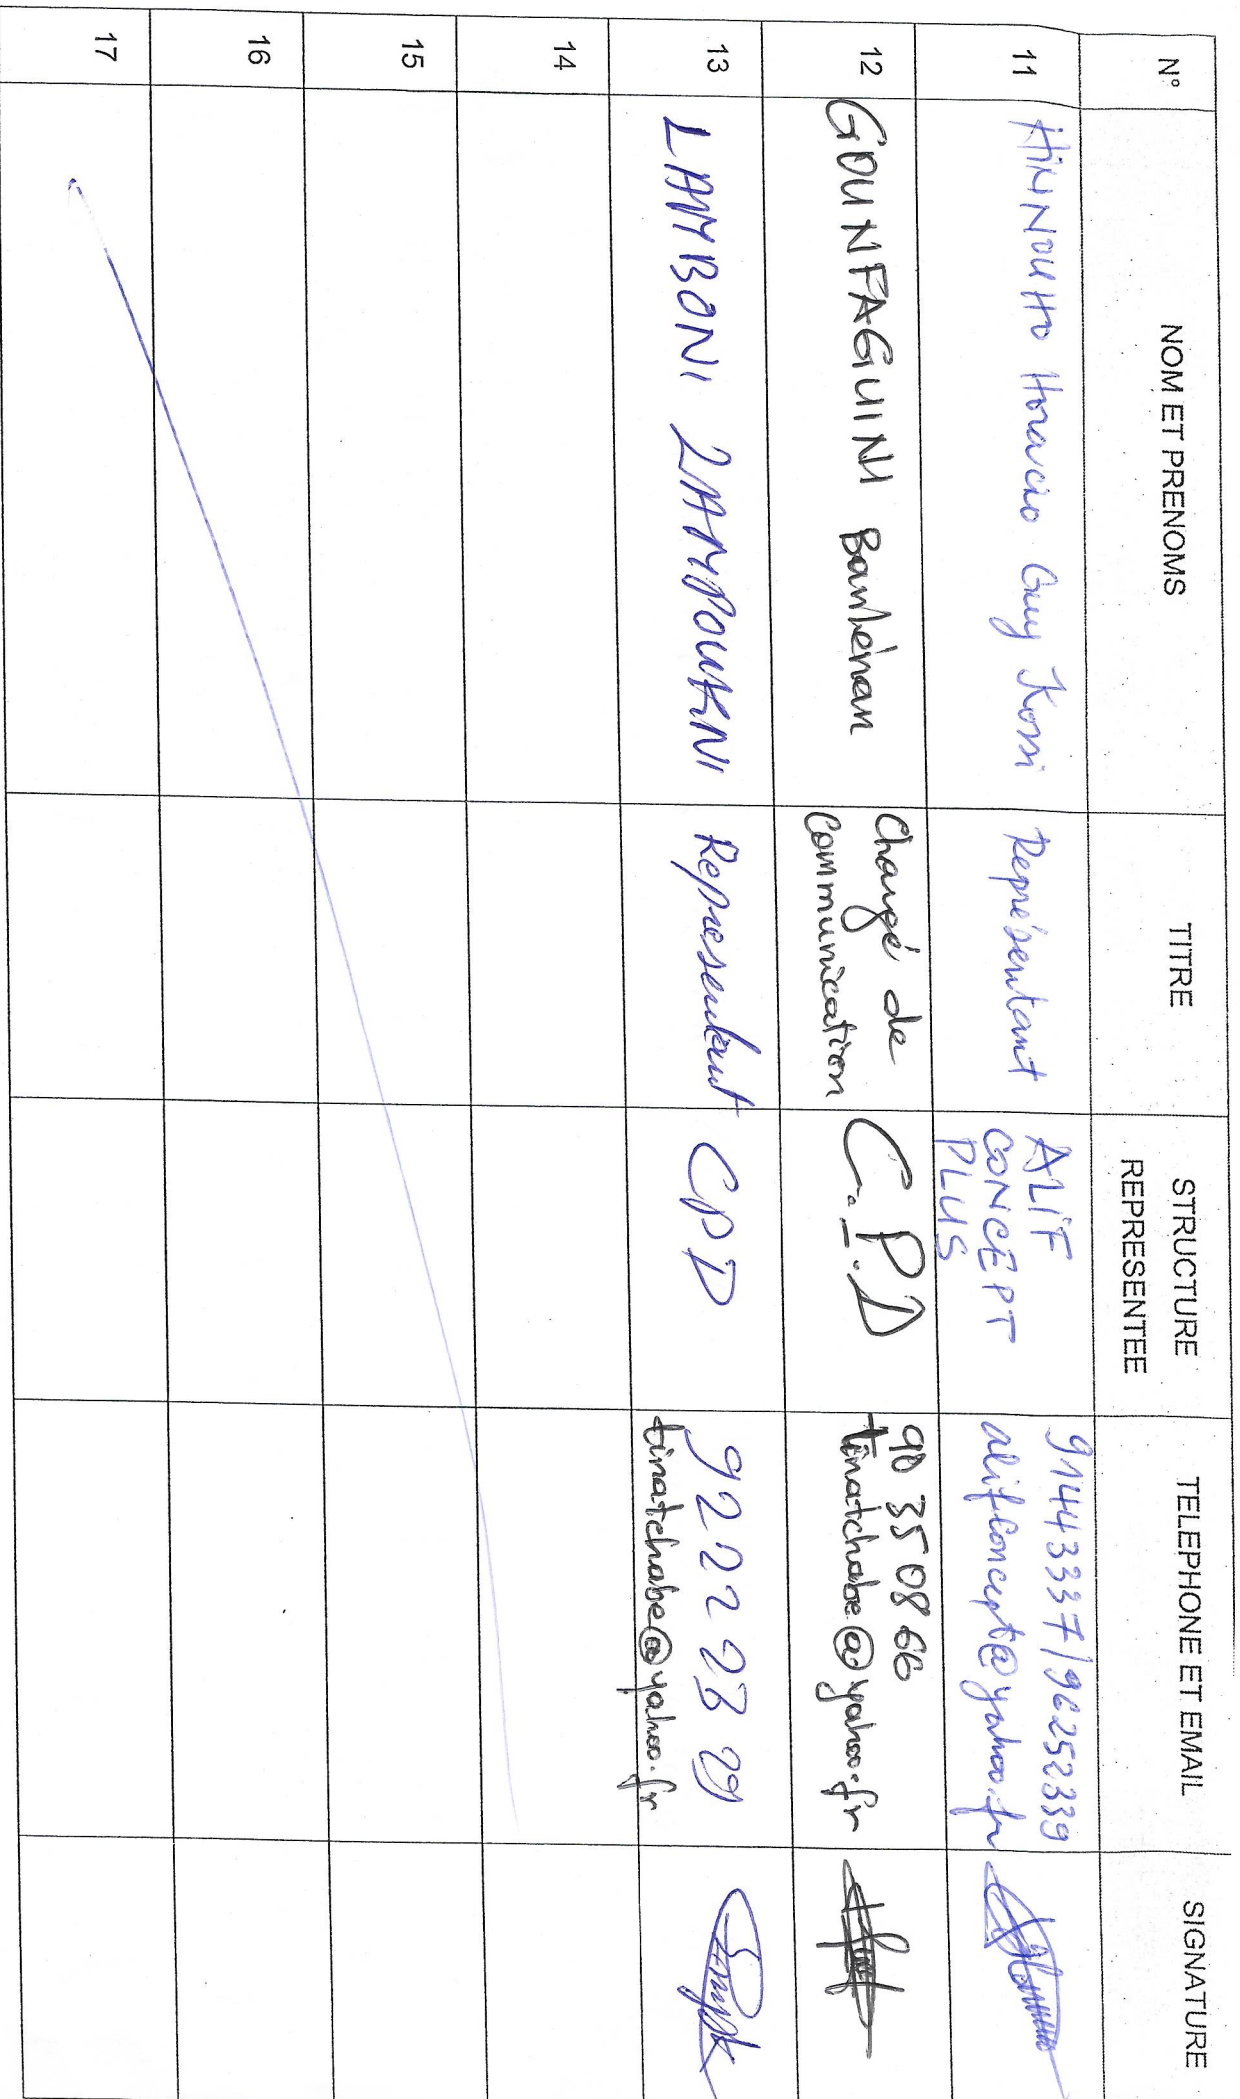 N° NOM ET PRENOMS TITRE STRUCTURE REPRESENTEE TELEPHONE ET EMAIL SIGNATURE
11 HiNNOUHO Horacio Guy Kossi Représentant ALiF CONCEPT PLUS 91443337/96252339 alifconcept@yahoo.fr
12 GOUNFAGUINI Banlénan Chargé de Communication C.P.D 90 35 08 66 tinatchabe@yahoo.fr
13 LAMYBONI LAMPOUKNI Representant CPD 92 22 23 29 tinatchabe@yahoo.fr
14
15
16
17